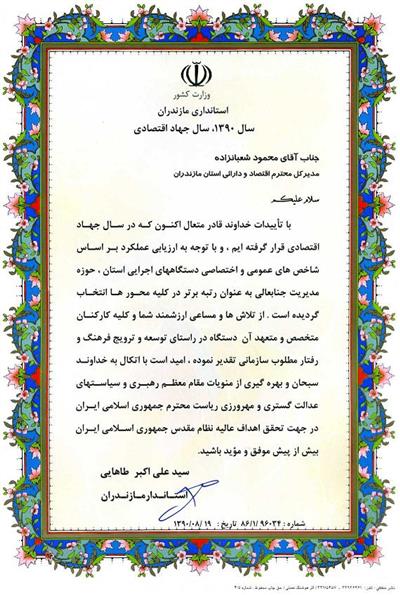 وزارت کشور
استانداری مازندران
سال ۱۳۹۰، سال جهاد اقتصادی
جناب آقای محمود شعبانزاده
مدیرکل محترم اقتصاد و دارائی استان مازندران
سلام علیکم
با تأییدات خداوند قادر متعال اکنون که در سال جهاد
اقتصادی قرار گرفته ایم ، و با توجه به ارزیابی عملکرد بر اساس
شاخص های عمومی و اختصاصی دستگاههای اجرایی استان ، حوزه
مدیریت جنابعالی به عنوان رتبه برتر در کلیه محور ها انتخاب
گردیده است . از تلاش ها و مساعی ارزشمند شما و کلیه کارکنان
متخصص و متعهد آن دستگاه در راستای توسعه و ترویج فرهنگ و
رفتار مطلوب سازمانی تقدیر نموده ، امید است با اتکال به خداوند
سبحان و بهره گیری از منویات مقام معظم رهبری و سیاستهای
عدالت گستری و مهرورزی ریاست محترم جمهوری اسلامی ایران
در جهت تحقق اهداف عالیه نظام مقدس جمهوری اسلامی ایران
بیش از پیش موفق و مؤید باشید.
سید علی اکبر طاهایی
استاندارمازندران
شماره : ۸۶/۱/۹۶۰۳۴ تاریخ : ۱۳۹۰/۰۸/۱۹